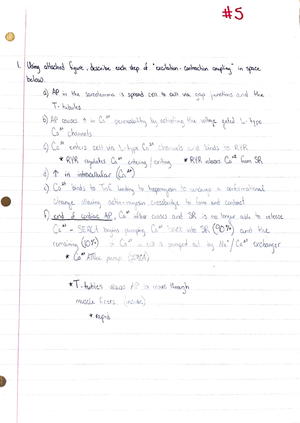 #5
1. Using attached figure, describe each step of "excitation-contraction coupling" in space
below.
a) AP in the sarcolemma is spread cell to cell via gap junctions and the
T-tubules
b) AP causes ↑ in Ca²⁺ permeability by activating the voltage gated L-type
Ca²⁺ channels
c) Ca²⁺ enters cell via L-type Ca²⁺ channels and binds to RYR
* RYR regulates Ca²⁺ entering/exiting * RYR releases Ca²⁺ from SR
d) ↑ in intracellular (Ca²⁺)
e) Ca²⁺ binds to TnC to tropomyosin to undergo a conformational
change allowing actin-myosin crossbridge to form and contract
f) end of cardiac AP, Ca²⁺ influx ceases and SR is no longer able to release
Ca²⁺ - SERCA begins pumping Ca²⁺ back into SR (90%) and the
remaining (10%) Ca²⁺ is pumped out by Na⁺/Ca²⁺ exchanger
* Ca²⁺ ATPase pump (SERCA)
* T-tubules allows AP to move through
muscle fibers (inside)
* rapid